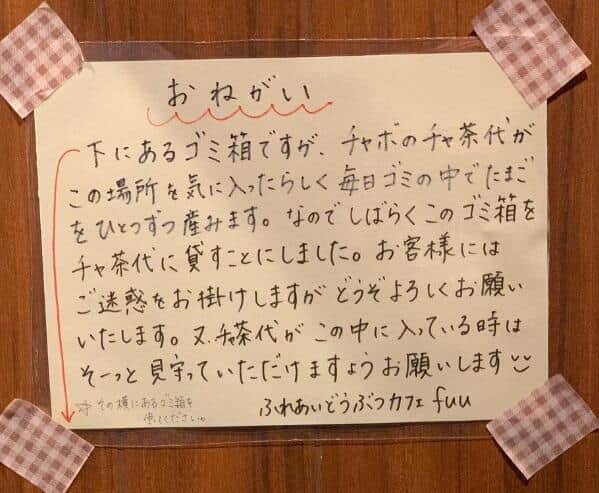 おねがい
下にあるゴミ箱ですが、チャボのチャ茶代が
この場所を気に入ったらしく毎日ゴミの中でたまご
をひとつずつ産みます。なのでしばらくこのゴミ箱を
チャ茶代に貸すことにしました。お客様には
ご迷惑をお掛けしますがどうぞよろしくお願い
いたします。又、チャ茶代がこの中に入っている時は
そーっと見守っていただけますようお願いします
☆その横にあるゴミ箱を
使ってください。
ふれあいどうぶつカフェ fuu